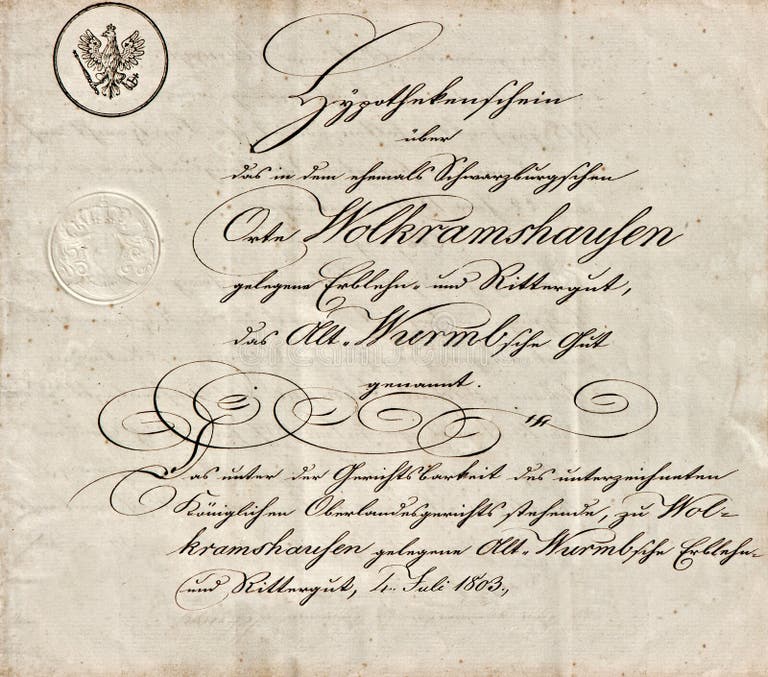 Hÿpothekenschein
über
das in dem ehemals Schwarzburgschen
Orte Wolkramshausen
gelegene Erblehn- und Rittergut,
das Alt-Wurmbsche Gut
genannt.
Das unter der Gerichtsbarkeit des unterzeichneten
Königlichen Oberlandesgerichts stehende, zu Wol=
kramshausen gelegene Alt-Wurmbsche Erblehn-
und Rittergut, 4. Juli 1803.,